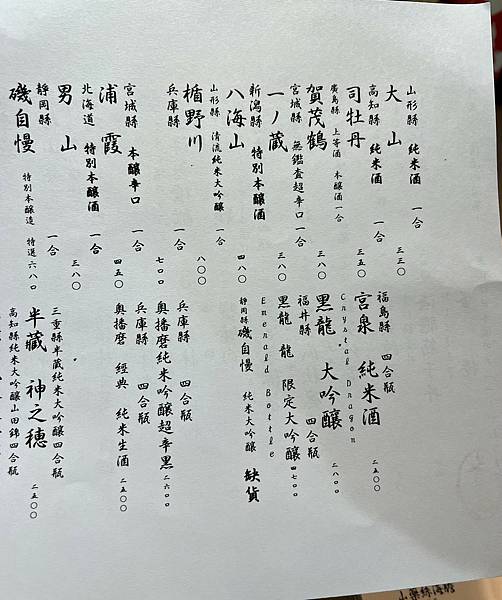 山形縣 純米酒 一合
大山 三三〇
高知縣 純米酒 一合
司牡丹 三五〇
廣島縣 上等酒 本釀酒一合
賀茂鶴 三八〇
宮城縣 無鑑査超辛口 一合
一ノ蔵 三八〇
新潟縣 特別本釀酒 一合
八海山 四八〇
山形縣 清流純米大吟釀 一合
楯野川 八〇〇
兵庫縣 一合
七〇〇
宮城縣 本釀辛口 一合
浦霞 四五〇
北海道 特別本釀酒 一合
男山 三八〇
靜岡縣 特別本釀造 特選 一合
磯自慢 六八〇
福島縣 四合瓶
宮泉 純米酒 二五〇〇
Crystal Dragon
福井縣 四合瓶
黑龍 大吟釀 二八〇〇
黑龍 龍 限定大吟釀 四七〇〇
Emerald Bottle
靜岡縣 磯自慢 純米大吟釀 缺貨
兵庫縣 四合瓶
奧播磨純米吟釀超辛黑 二六〇〇
兵庫縣 四合瓶
奧播磨 經典 純米生酒 二五〇〇
三重縣半藏純米大吟釀四合瓶
半藏 神之穗 二五〇〇
高知縣純米大吟釀山田錦四合瓶